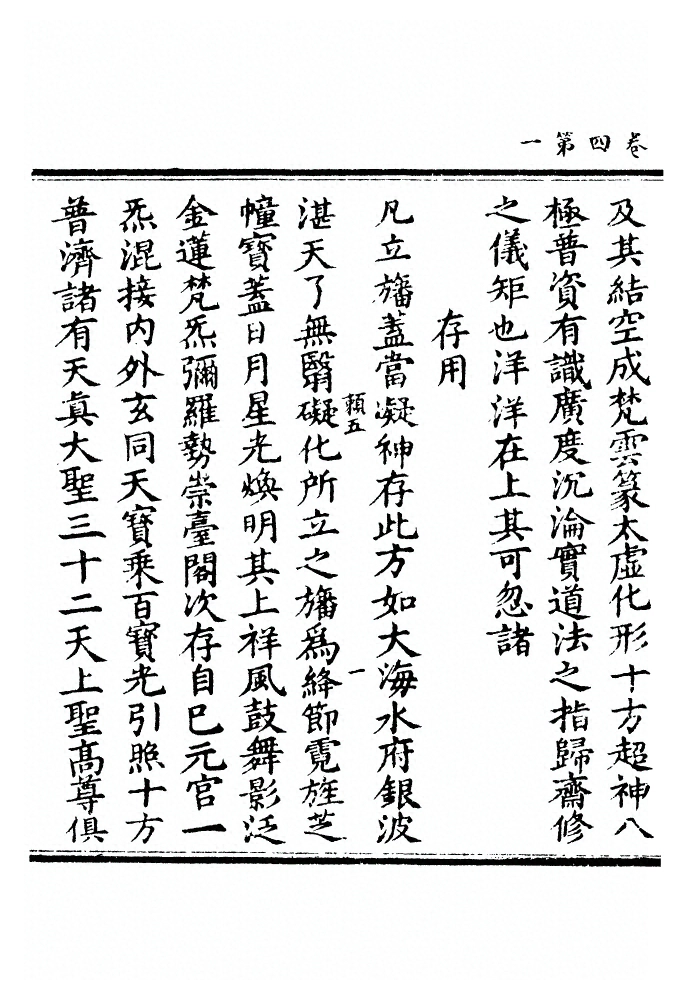 卷四第一
及其結空成梵雲篆太虛化形十方超神八
極普資有識廣度沉淪實道法之指歸齋修
之儀矩也洋洋在上其可忽諸
存用
凡立旛蓋當凝神存此方如大海水府銀波
湛天了無翳礙化所立之旛為絳節霓旌芝
頼五
一
幢寶蓋日月星光煥明其上祥風鼓舞影泛
金蓮梵炁彌羅勢崇臺閣次存自己元宫一
炁混接内外玄同天寶乘百寶光引照十方
普濟諸有天真大聖三十二天上聖高尊俱